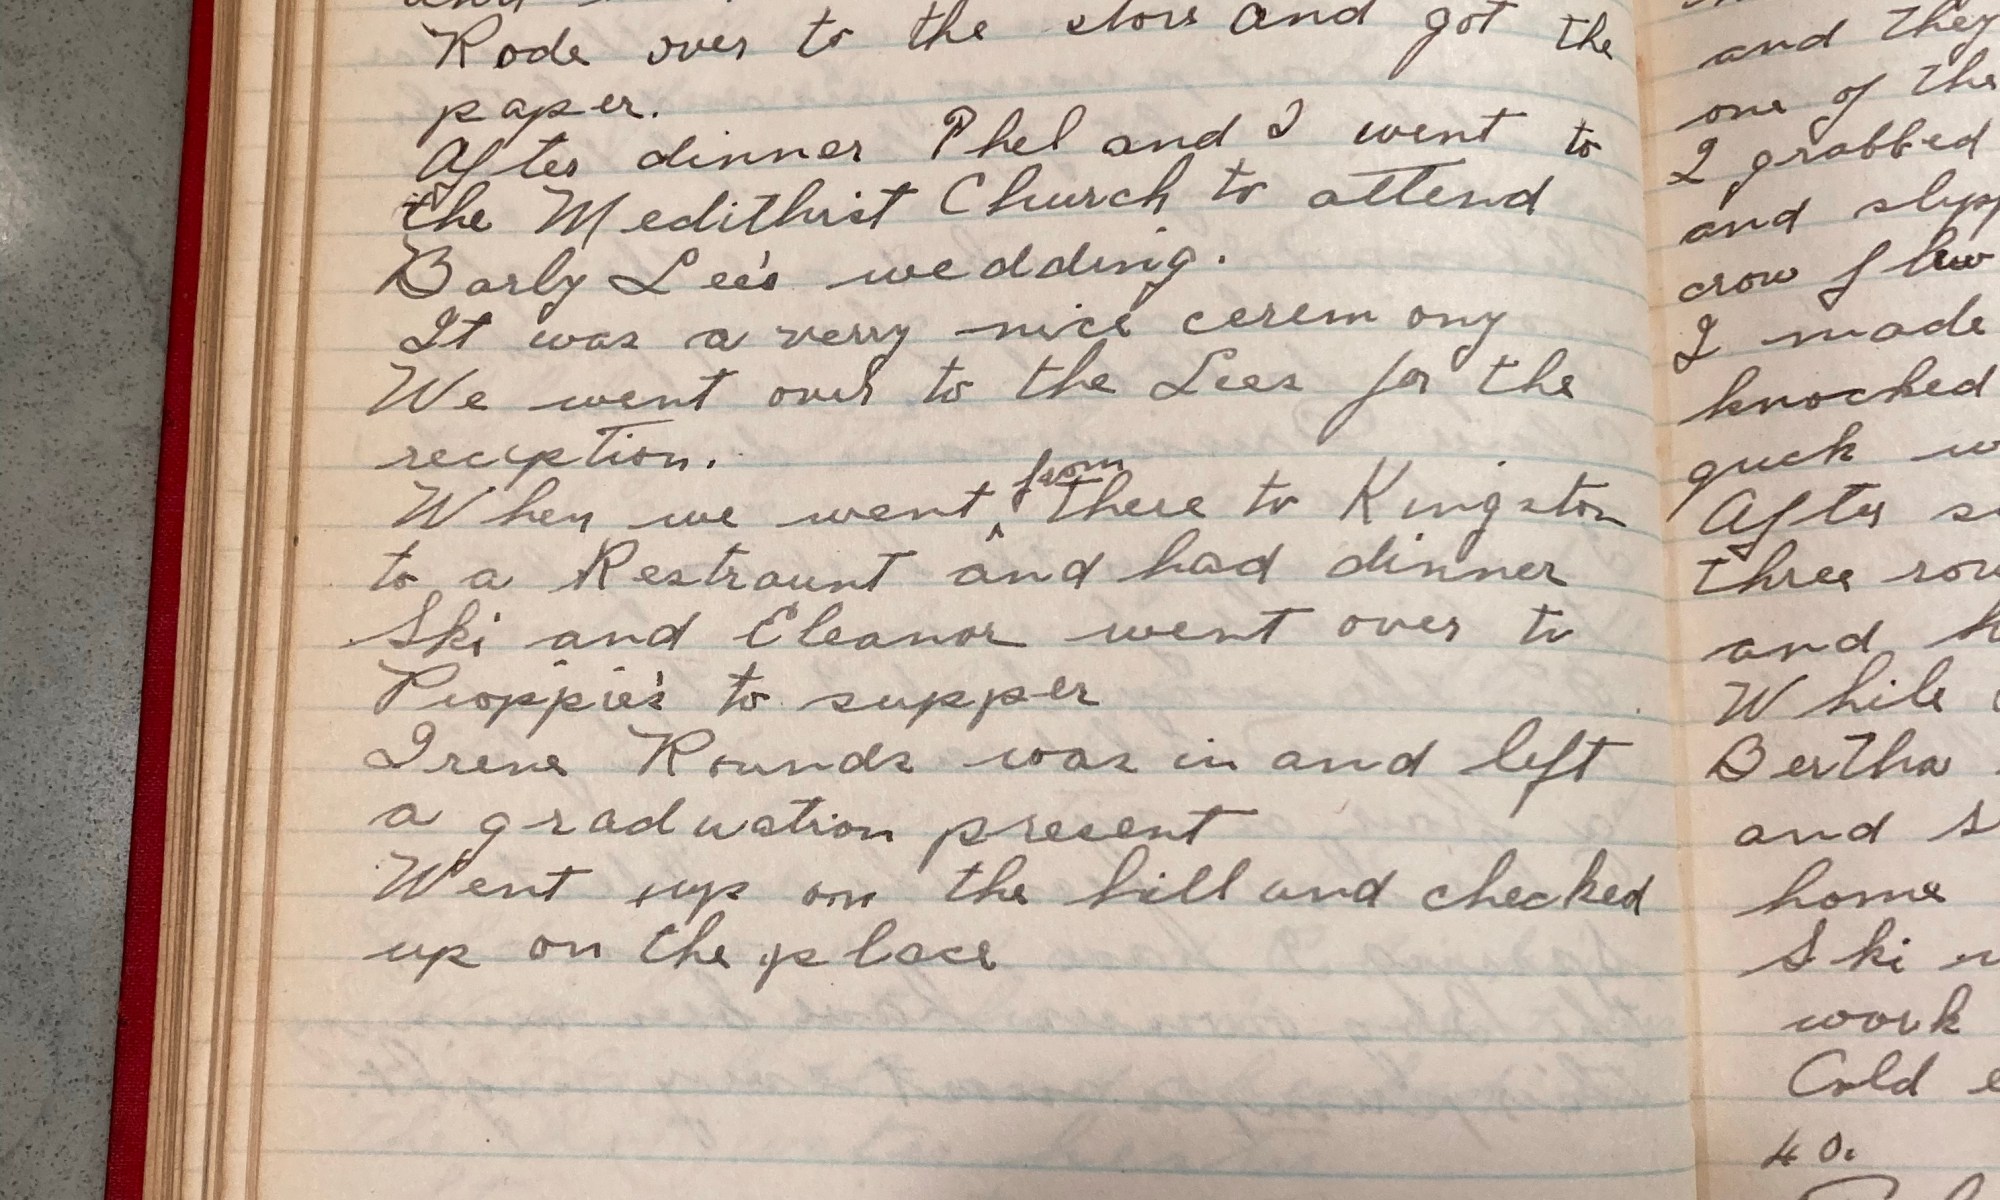 Rode over to the store and got the
paper.
After dinner Phel and I went to
the Medithist Church to attend
Barly Lee's wedding.
It was a verry nice ceremony
We went over to the Lees for the
reception.
When we went from there to Kingston
to a Restraunt and had dinner
Ski and Eleanor went over to
to supper
Irene Rounds was in and left
a graduation present
Went up on the hill and checked
up on the place
and they
one of the
I grabbed
and slipp
crow flew
I made
knocked
quck w
After s
three rou
and h
While
Bertha
and s
home
Ski
work
Cold
40.